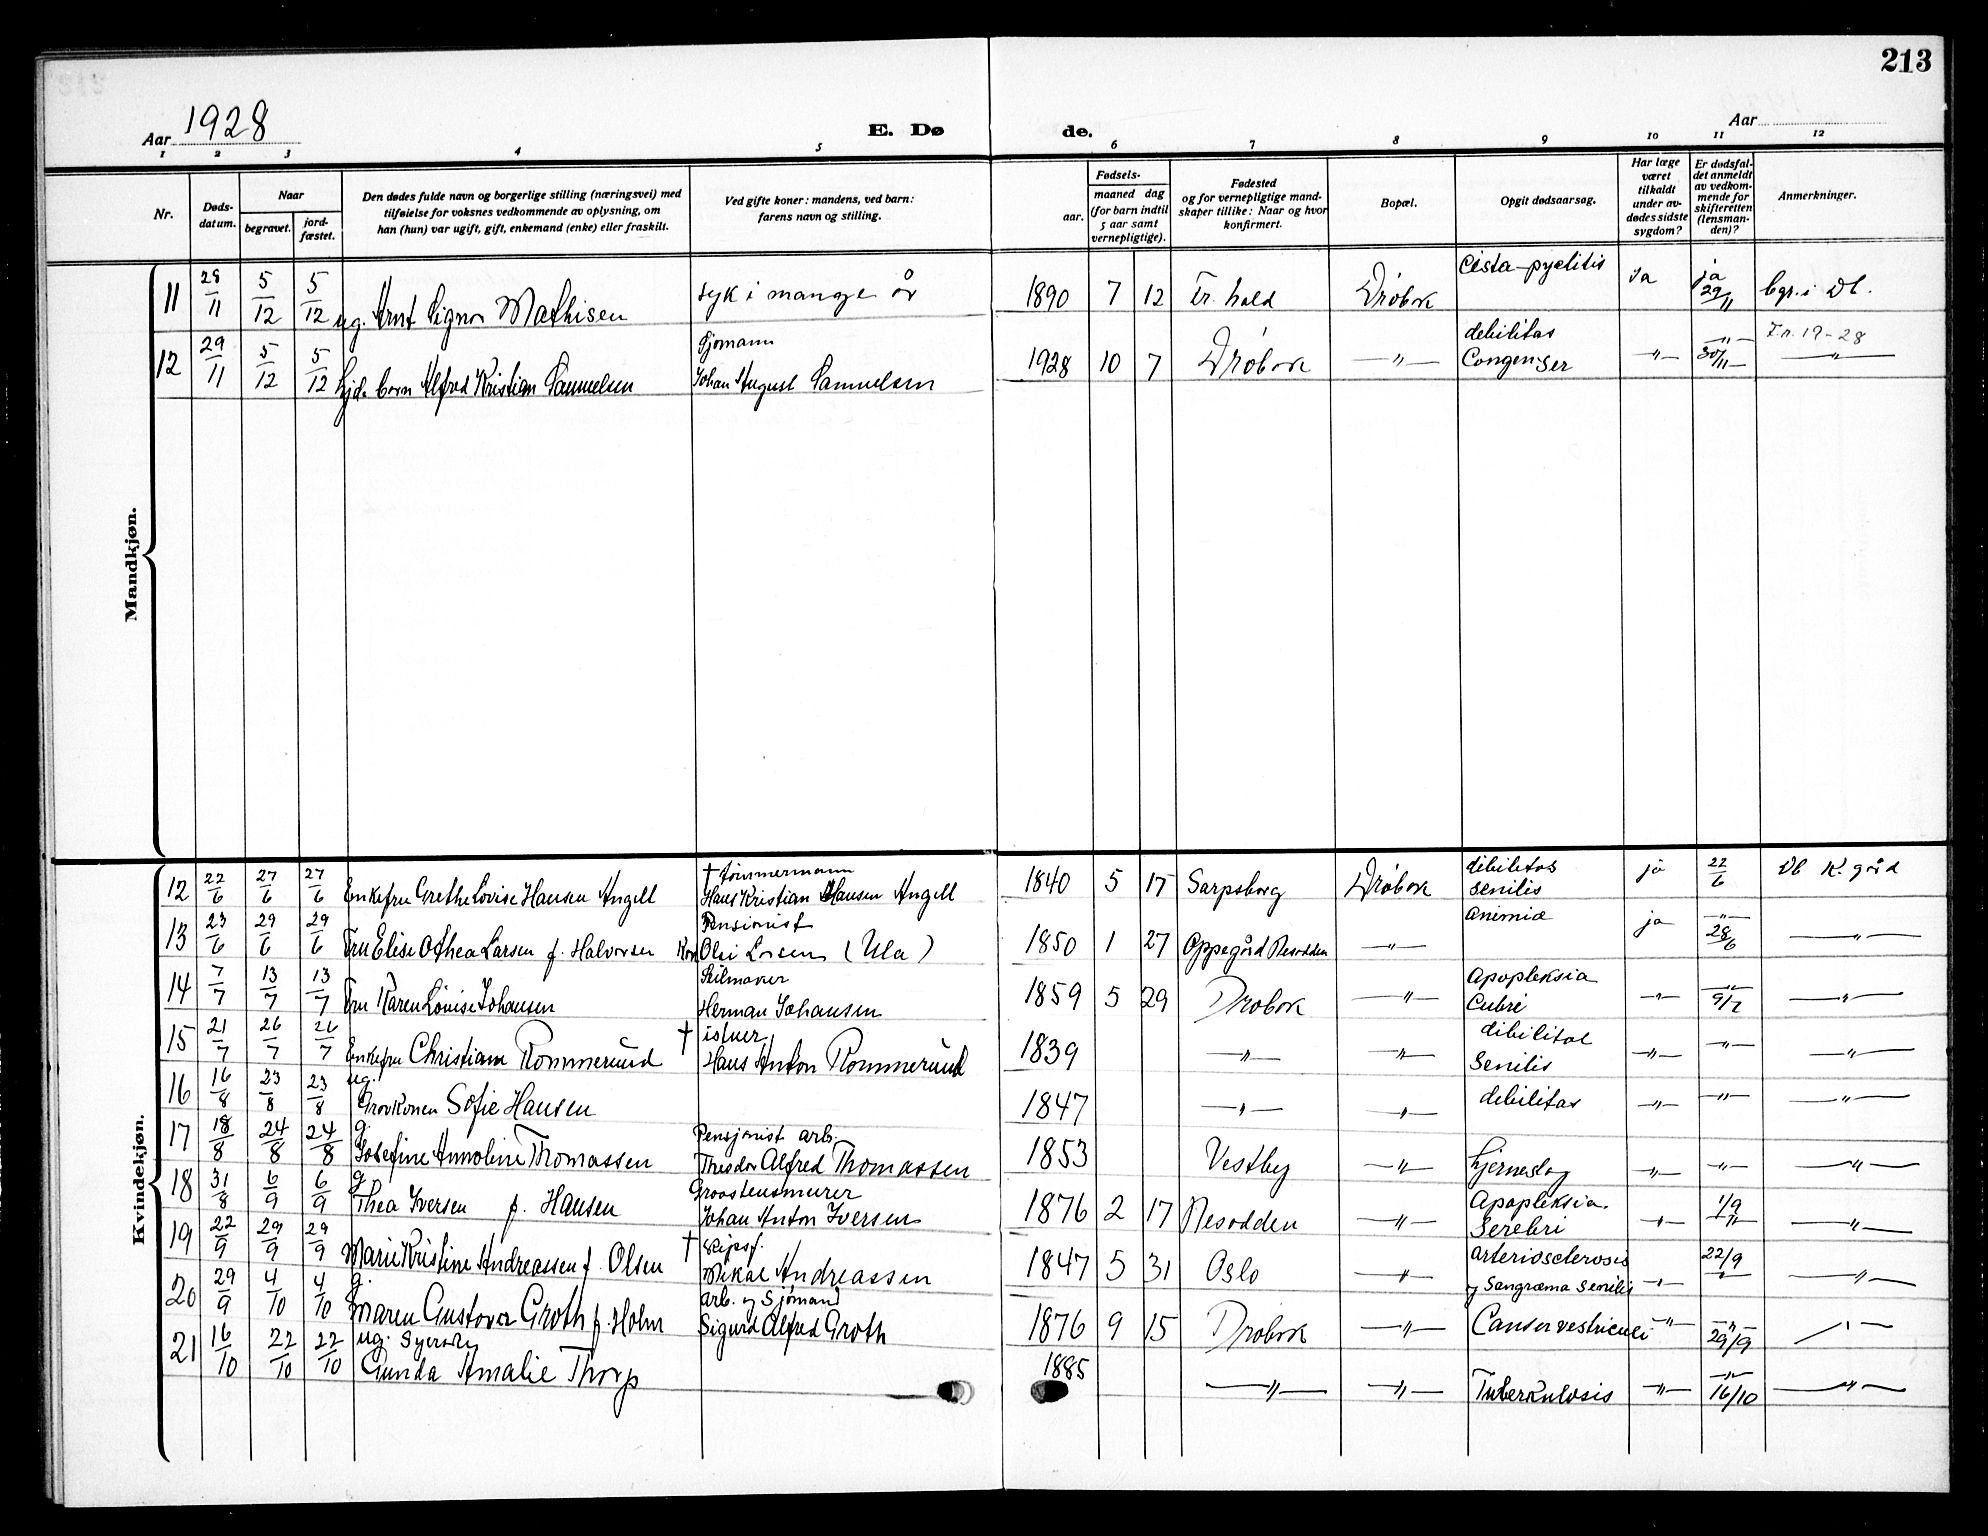 213
Aar 1928
E. Dø de.
Aar
1 2 3 4 5 6 7 8 9 10 11 12
Nr.
Døds-
datum.
Naar
begravet.
jord-
fæstet.
Den dødes fulde navn og borgerlige stilling (næringsvei) med
tilføielse for voksnes vedkommende av oplysning, om
han (hun) var ugift, gift, enkemand (enke) eller fraskilt.
Ved gifte koner: mandens, ved barn:
farens navn og stilling.
Fødsels-
aar.
maaned dag
(for barn indtil
5 aar samt
vernepligtige).
Fødested
og for vernepligtige mand-
skaper tillike: Naar og hvor
konfirmert.
Bopæl.
Opgit dødsaarsag.
Har læge
været
tilkaldt
under av-
dødes sidste
sygdom?
Er dødsfal-
det anmeldt
av vedkom-
mende for
skifteretten
(lensman-
den)?
Anmerkninger.
Mandkjøn.
11 28/11 5/12 5/12 ug. Arnt Signor Mathisen syk i mange år 1890 7 12 Fr. hald Drøbak Cista-pyelitis Ja ja 29/11 bgr. i Db.
12 29/11 5/12 5/12 hjd. barn Alfred Kristian Samuelsen Sjømann
Johan August Samuelsen 1928 10 7 Drøbak —"— debilitas
Congen-Ser —"— —"— 30/11 Fr. 19-28
—"—
Kvindekjøn.
12 22/6 27/6 27/6 Enkefru Grethe Lovise Hansen Angell † tømmermann
Hans Kristian Hansen Angell 1840 5 15 Sarpsborg Drøbak debilitas
senilis ja 22/6 Db K. gård
13 23/6 29/6 29/6 Fru Elise Othea Larsen f. Halvorsen Pensionist
Olai Larsen (Ula) 1850 1 27 Oppegård Nesodden —"— anemia ja —"— 28/6 —"—
14 7/7 13/7 13/7 Fru Karen Lovise Johansen Seilmaker
Herman Johansen 1859 5 29 Drøbak —"— Apopleksia
Cubri —"— —"— 9/7 —"—
15 21/7 26/7 26/7 Enkefru Christiane Rommerund † istuer
Hans Anton Rommerund 1839 —"— —"— dibilitae
Senilis —"— —"— —"—
16 16/8 23/8 23/8 ug.
Grovkonen Sofie Hansen 1847 —"— —"— debilitas —"— —"— —"—
17 18/8 24/8 24/8 g.
Josefine Annoline Thomassen Pensjonist arb.
Theodor Alfred Thomassen 1853 Vestby —"— hjerneslag —"— —"— —"—
18 31/8 6/9 6/9 g
Thea Iversen f. Hansen Graastensmurer
Johan Anton Iversen 1876 2 17 Nesodden —"— Apopleksia.
Serebri —"— 1/9 —"— —"—
19 22/9 29/9 29/9 Marie Kristine Andreassen f. Olsen † skipsf.
Mikal Andreassen 1847 5 31 Oslo —"— arteriosclerosis
og Sangræma Senilis —"— 22/9 —"— —"—
20 29/9 4/10 4/10 g.
Maren Gustava Groth f. Holm arb. og Sjømand
Sigurd Alfred Groth 1876 9 15 Drøbak —"— Canser vestriculi —"— —"— 29/9 —"—
21 16/10 22/10 22/10 ug. Syerske
Gunda Amalie Thorp 1885 —"— —"— Tuberkulosis —"— —"— 16/10 —"—